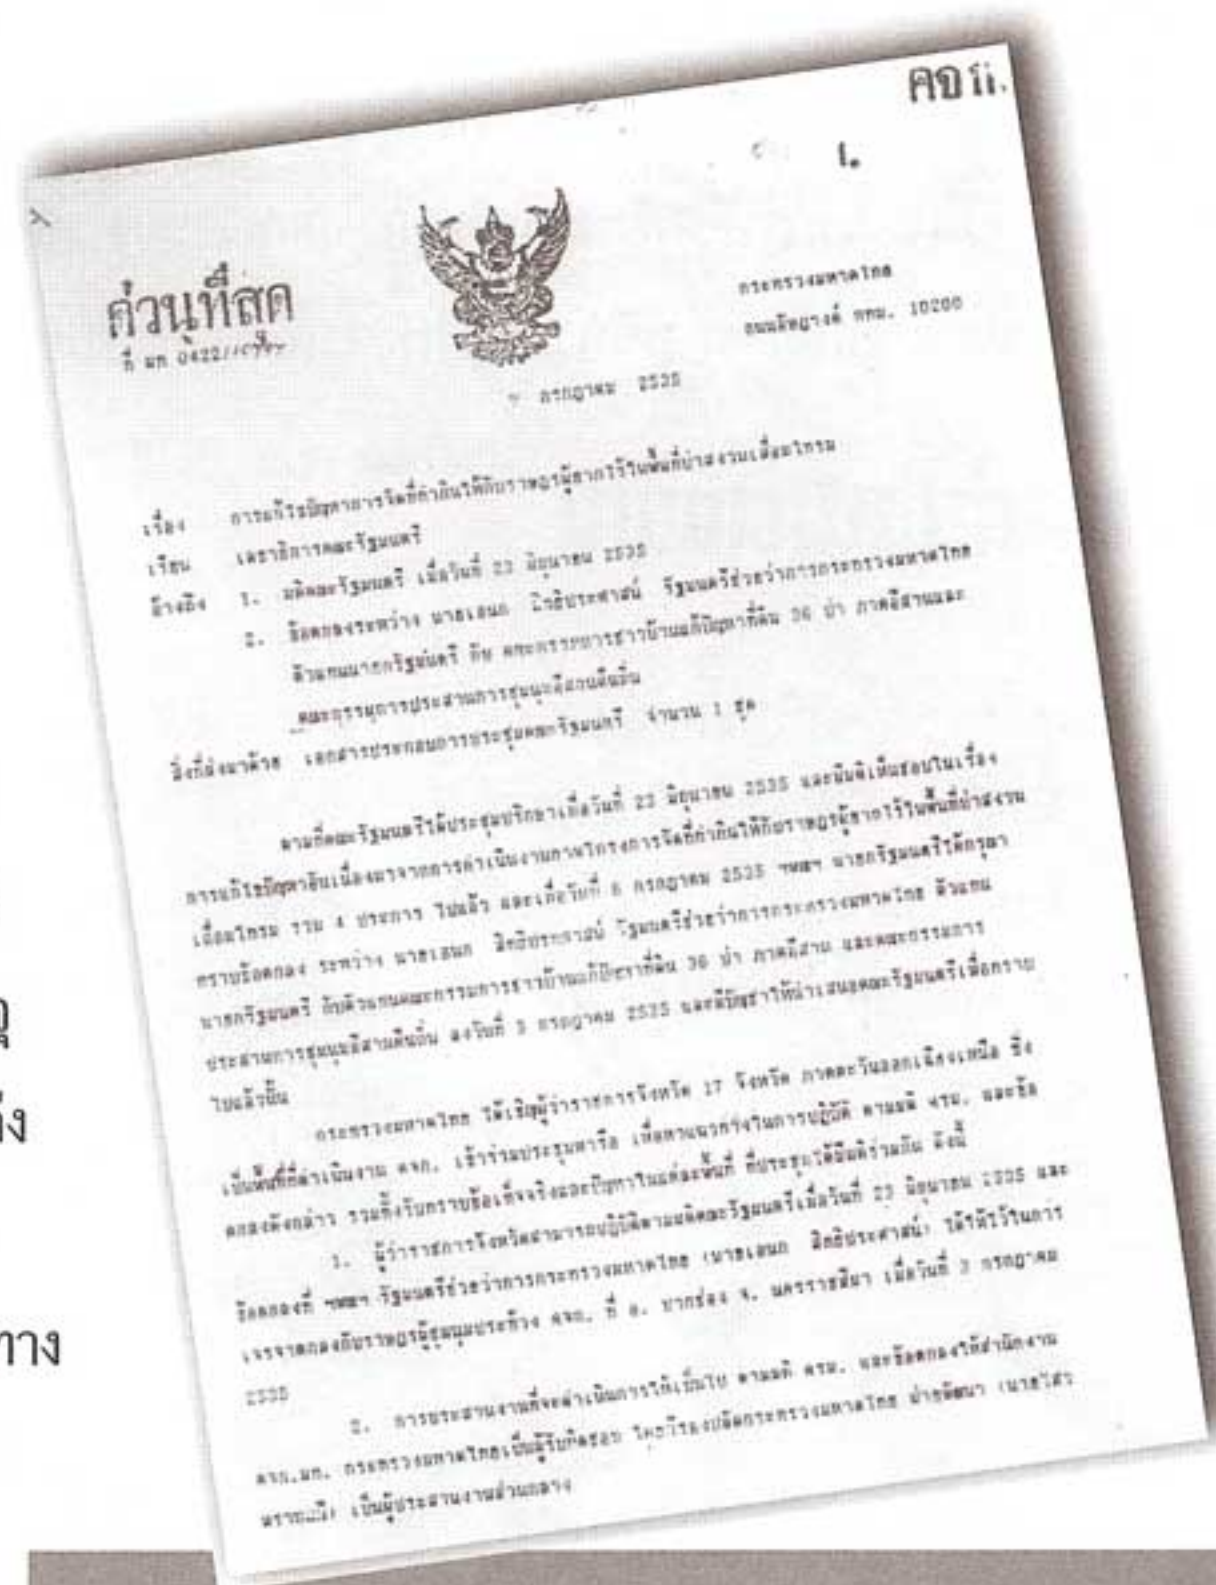 ด่วนที่สุด
ที่ มท 0422/
กระทรวงมหาดไทย
ถนนอัษฎางค์ กทม. 10200
กรกฎาคม 2535
เรื่อง การแก้ไขปัญหาการจัดที่ทำกินให้กับราษฎรผู้ยากไร้ในพื้นที่ป่าสงวนเสื่อมโทรม
เรียน เลขาธิการคณะรัฐมนตรี
อ้างถึง 1. มติคณะรัฐมนตรี เมื่อวันที่ 23 มิถุนายน 2535
2. ข้อตกลงระหว่าง นายเอนก สิทธิประศาสน์ รัฐมนตรีช่วยว่าการกระทรวงมหาดไทย
ตัวแทนนายกรัฐมนตรี กับ คณะกรรมการชาวบ้านแก้ปัญหาที่ดิน 36 ป่า ภาคอีสานและ
คณะกรรมการประสานการชุมนุมอีสานคืนถิ่น
สิ่งที่ส่งมาด้วย เอกสารประกอบการประชุมคณะรัฐมนตรี จำนวน 1 ชุด
ตามที่คณะรัฐมนตรีได้ประชุมปรึกษาเมื่อวันที่ 23 มิถุนายน 2535 และมีมติเห็นชอบในเรื่อง
การแก้ไขปัญหาอันเนื่องมาจากการดำเนินงานตามโครงการจัดที่ทำกินให้กับราษฎรผู้ยากไร้ในพื้นที่ป่าสงวน
เสื่อมโทรม รวม 4 ประการ ไปแล้ว และเมื่อวันที่ 6 กรกฎาคม 2535 ฯพณฯ นายกรัฐมนตรีได้กรุณา
ทราบข้อตกลง ระหว่าง นายเอนก สิทธิประศาสน์ รัฐมนตรีช่วยว่าการกระทรวงมหาดไทย ตัวแทน
นายกรัฐมนตรี กับตัวแทนคณะกรรมการชาวบ้านแก้ปัญหาที่ดิน 36 ป่า ภาคอีสาน และคณะกรรมการ
ประสานการชุมนุมอีสานคืนถิ่น ลงวันที่ 3 กรกฎาคม 2535 และมีบัญชาให้นำเสนอคณะรัฐมนตรีเพื่อทราบ
ไปแล้วนั้น
กระทรวงมหาดไทย ได้เชิญผู้ว่าราชการจังหวัด 17 จังหวัด ภาคตะวันออกเฉียงเหนือ ซึ่ง
เป็นพื้นที่ที่ดำเนินงาน คจก. เข้าร่วมประชุมหารือ เพื่อหาแนวทางในการปฏิบัติ ตามมติ ครม. และข้อ
ตกลงดังกล่าว รวมทั้งรับทราบข้อเท็จจริงและปัญหาในแต่ละพื้นที่ ที่ประชุมได้มีมติร่วมกัน ดังนี้
1. ผู้ว่าราชการจังหวัดสามารถปฏิบัติตามมติคณะรัฐมนตรีเมื่อวันที่ 23 มิถุนายน 2535 และ
ข้อตกลงที่ ฯพณฯ รัฐมนตรีช่วยว่าการกระทรวงมหาดไทย (นายเอนก สิทธิประศาสน์) ได้ให้ไว้ในการ
เจรจาตกลงกับราษฎรผู้ชุมนุมประท้วง คจก. ที่ อ. ปากช่อง จ. นครราชสีมา เมื่อวันที่ 3 กรกฎาคม
2535
2. การประสานงานที่จะดำเนินการให้เป็นไป ตามมติ ครม. และข้อตกลงให้สำนักงาน
คจก.มท. กระทรวงมหาดไทยเป็นผู้รับผิดชอบ โดยมีรองปลัดกระทรวงมหาดไทย ฝ่ายพัฒนา
เป็นผู้ประสานงานส่วนกลาง